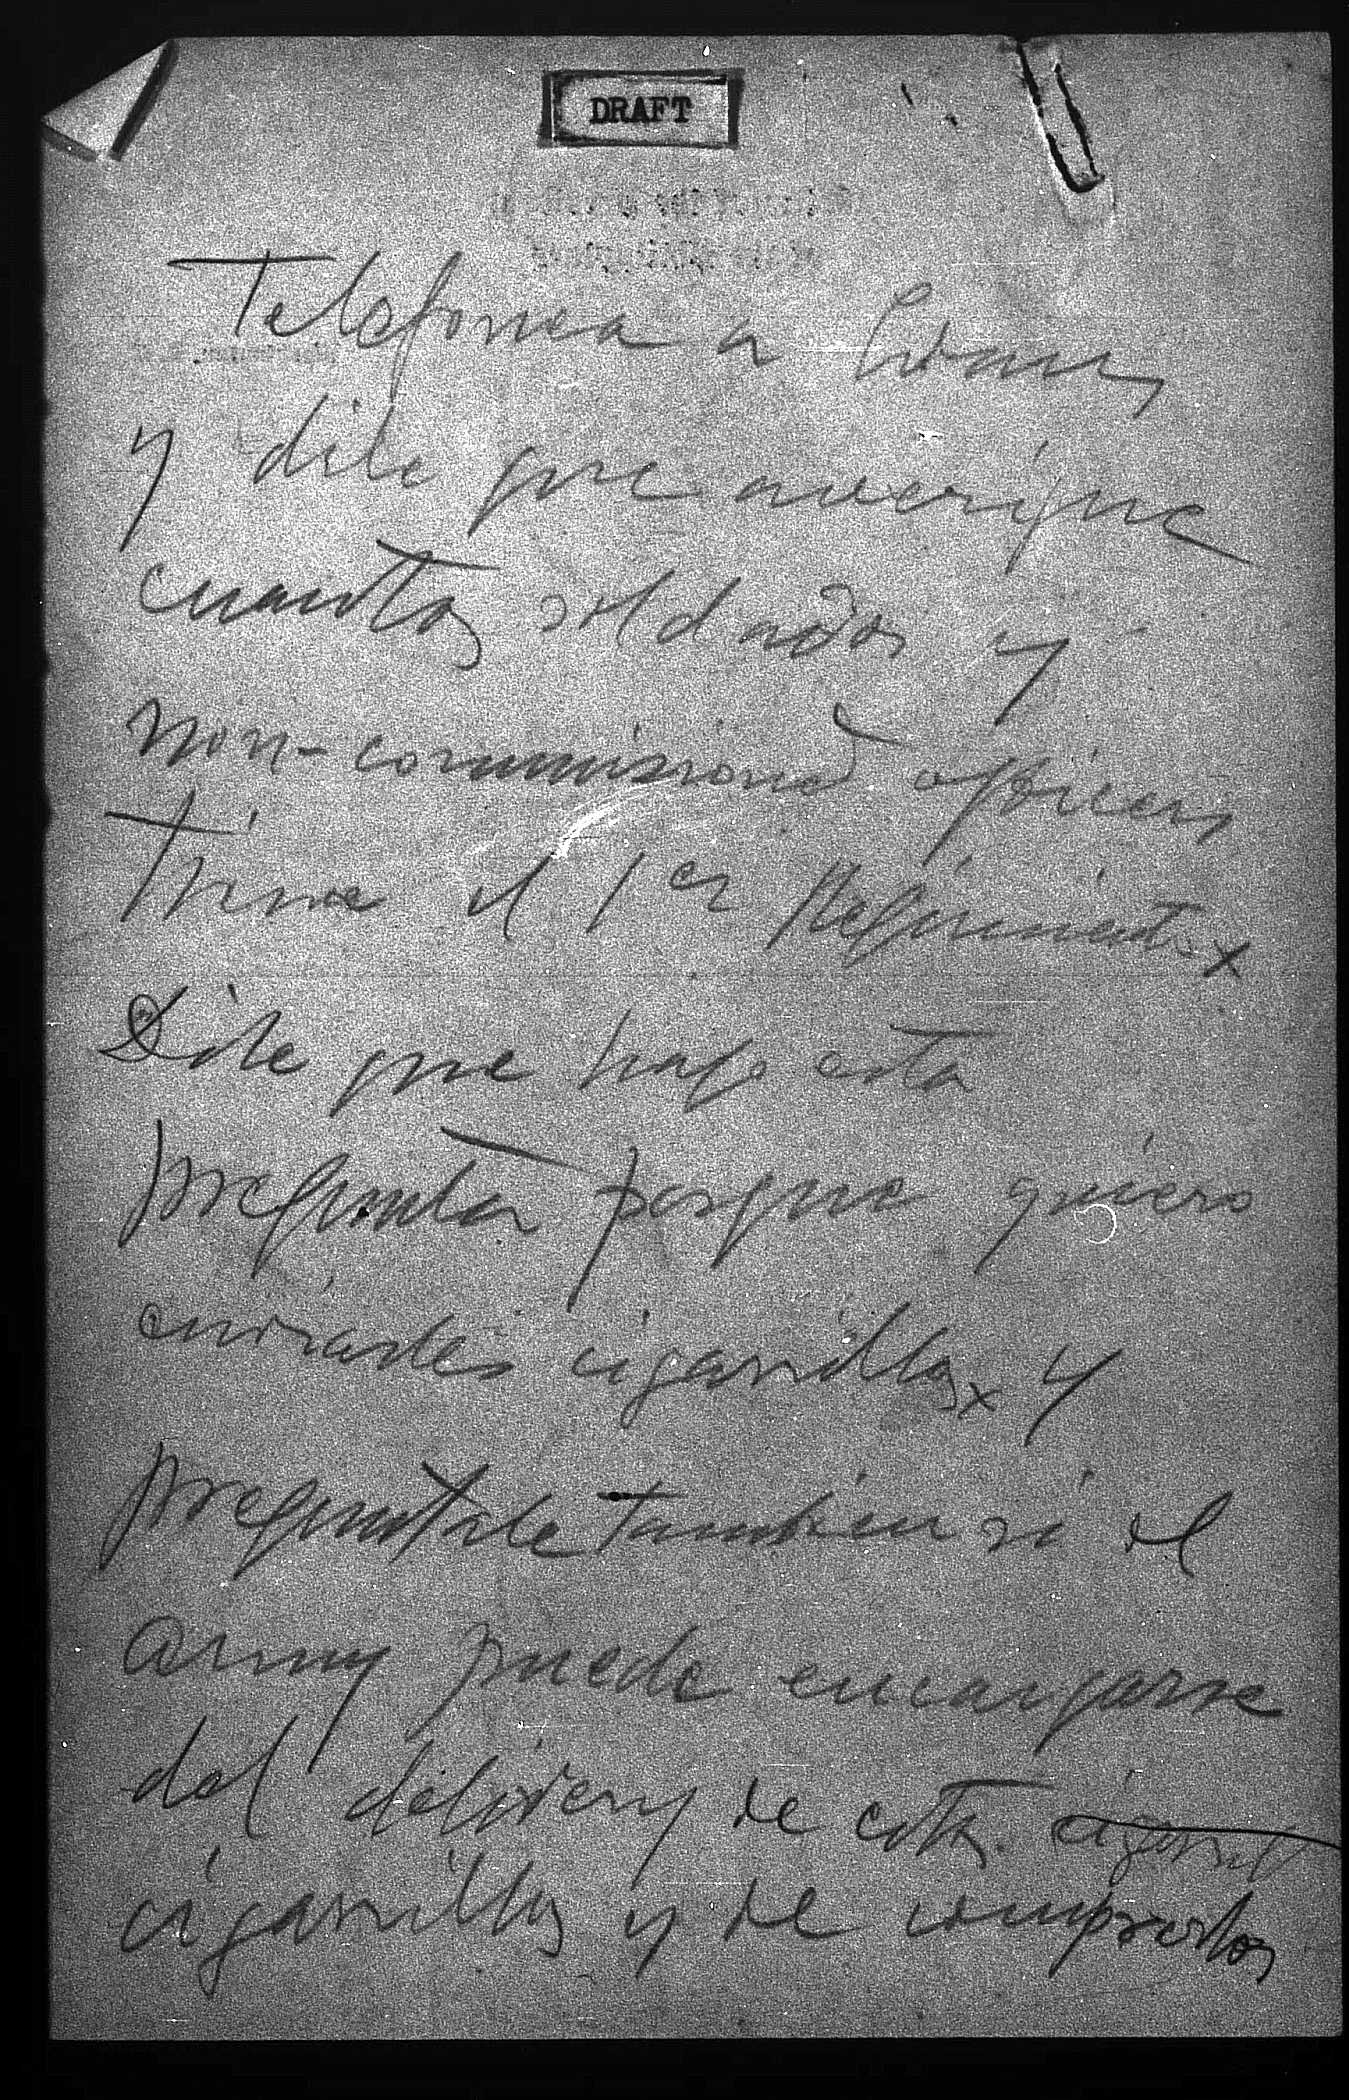 DRAFT
Telefonea a
y dile que averigue
cuantos soldados y
non-commissioned officers
tiene el 1er Regimiento x
Dile que hago esta
pregunta porque quiero
enviarles cigarrillos x y
preguntale tambien si el
army puede encargarse
del delivery de estos
cigarrillos y de comprarlos